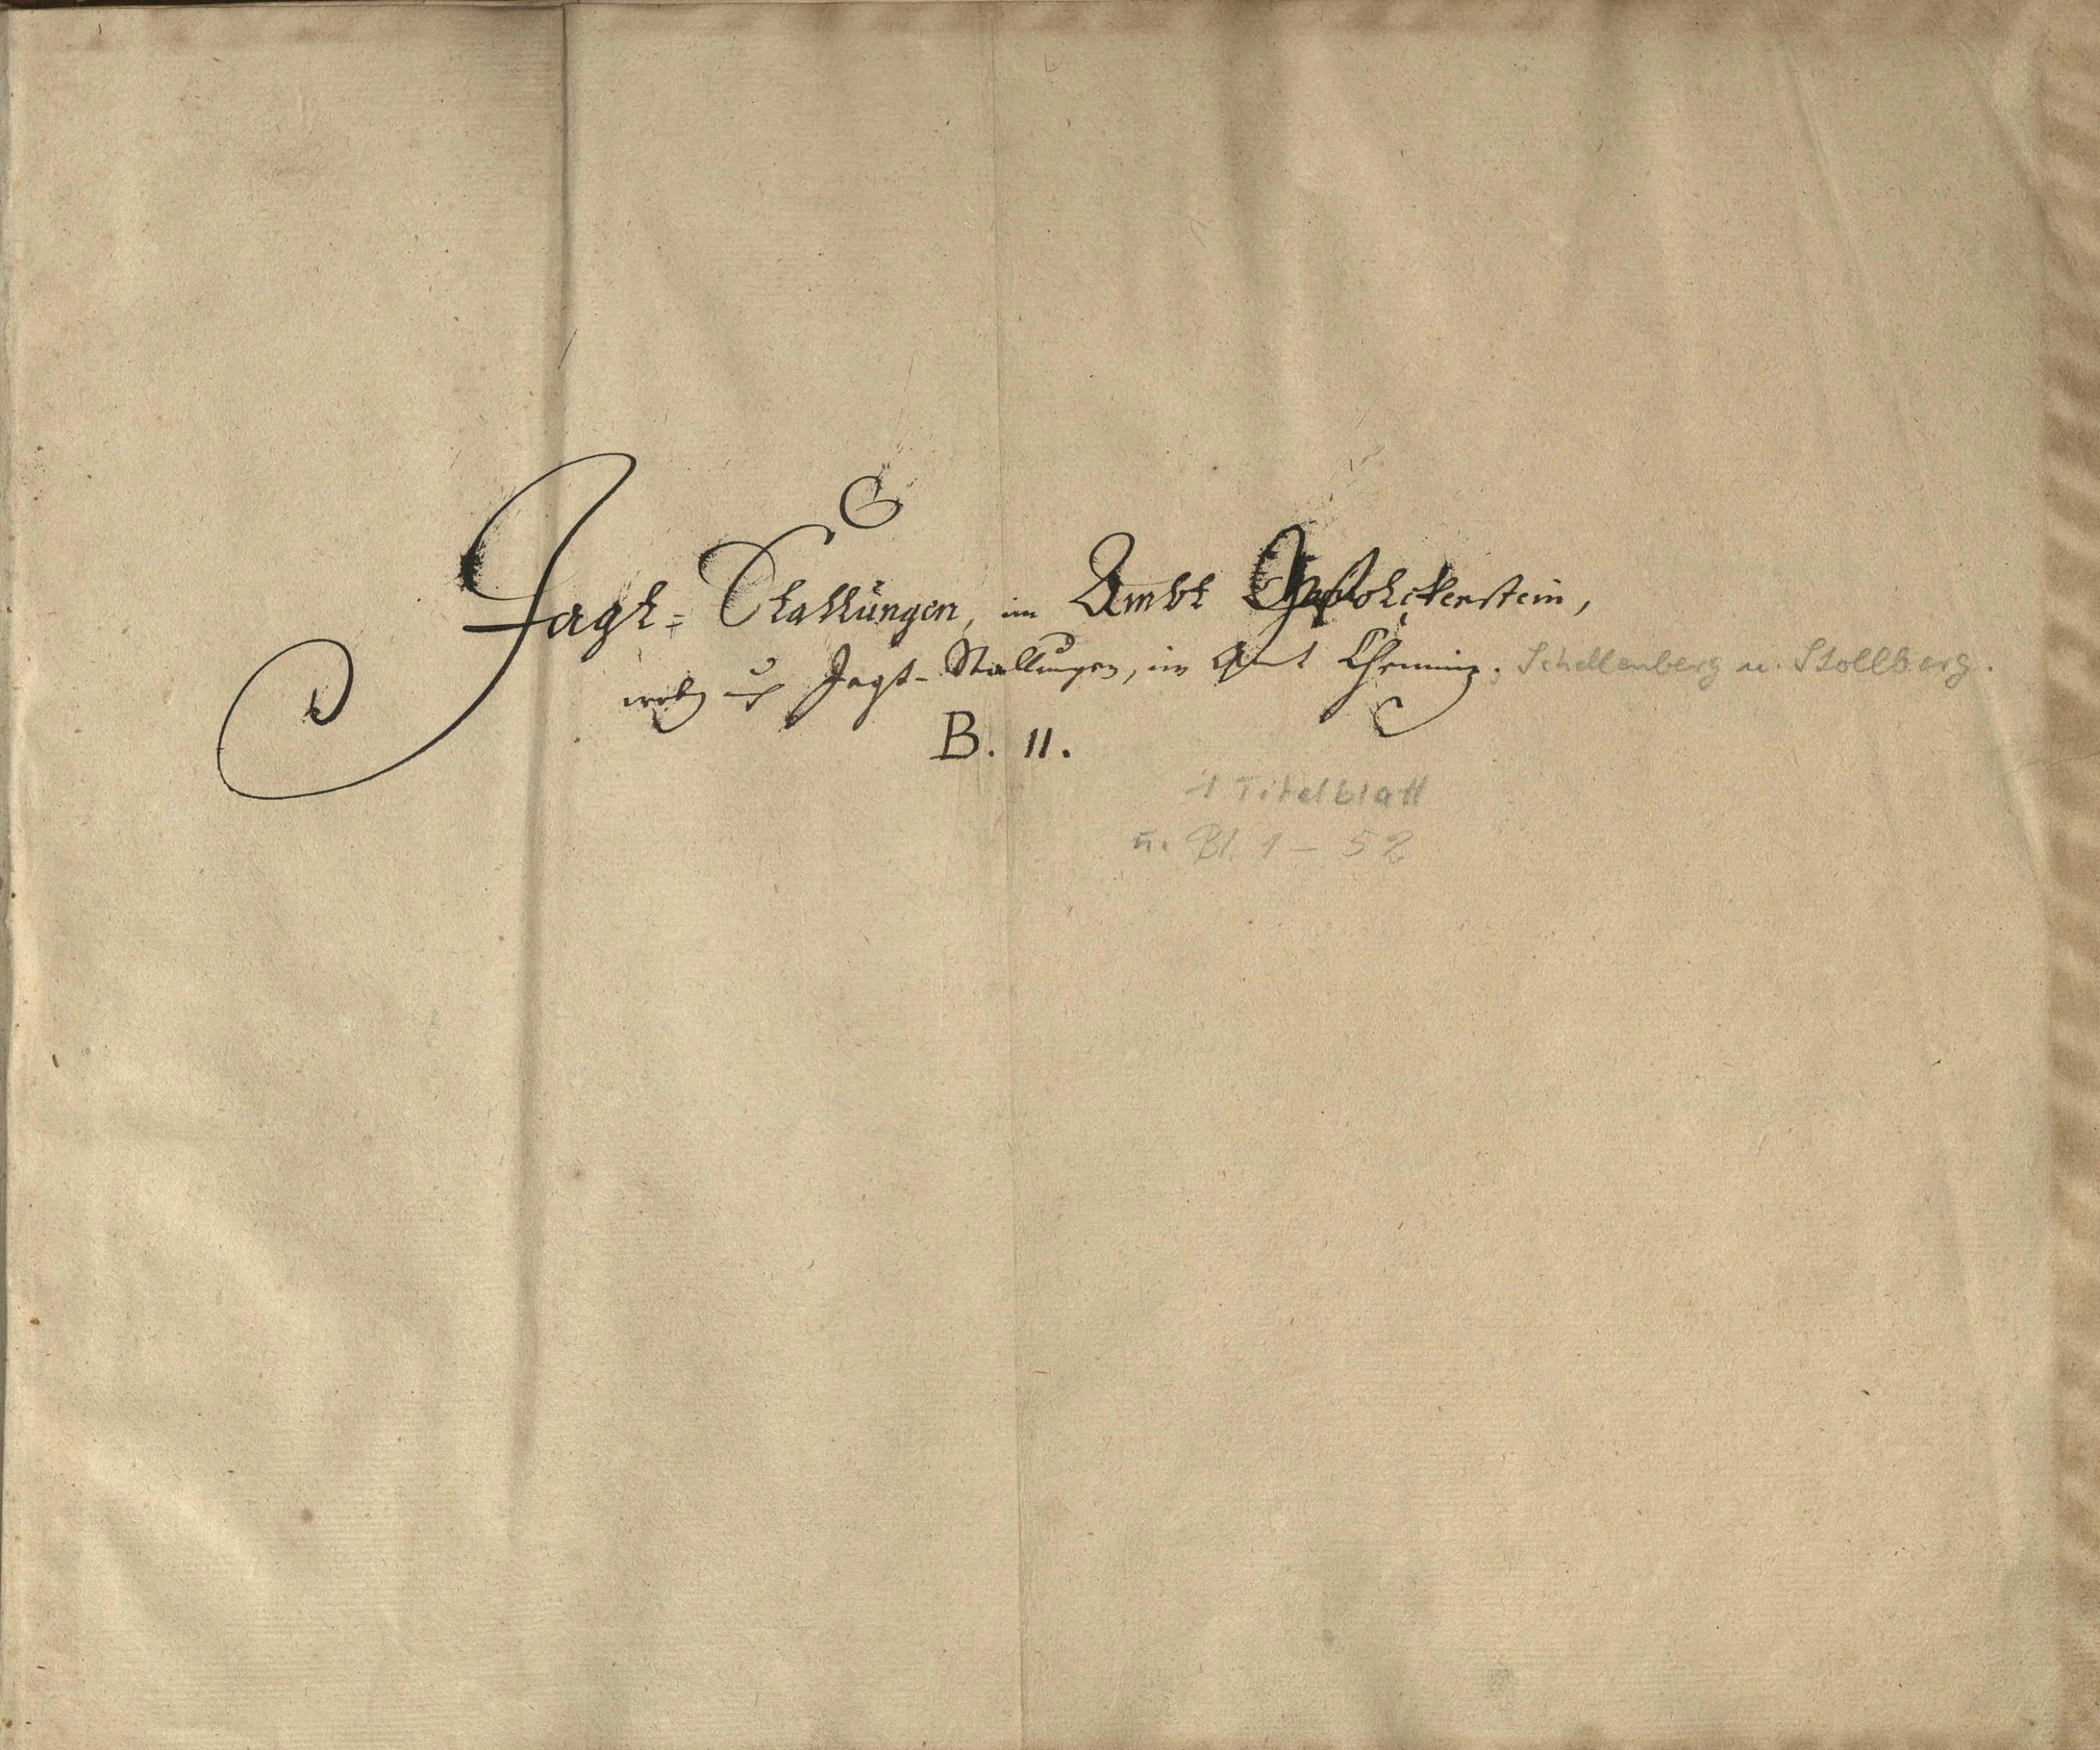 Jagt-Stallüngen, im Ambt Wolckenstein,
wobey auch Jagt-Stallungen, im Amt Chemniz. Schellenberg u. Stollberg.
B. 11.
1 Titelblatt
u. Bl. 1 – 52